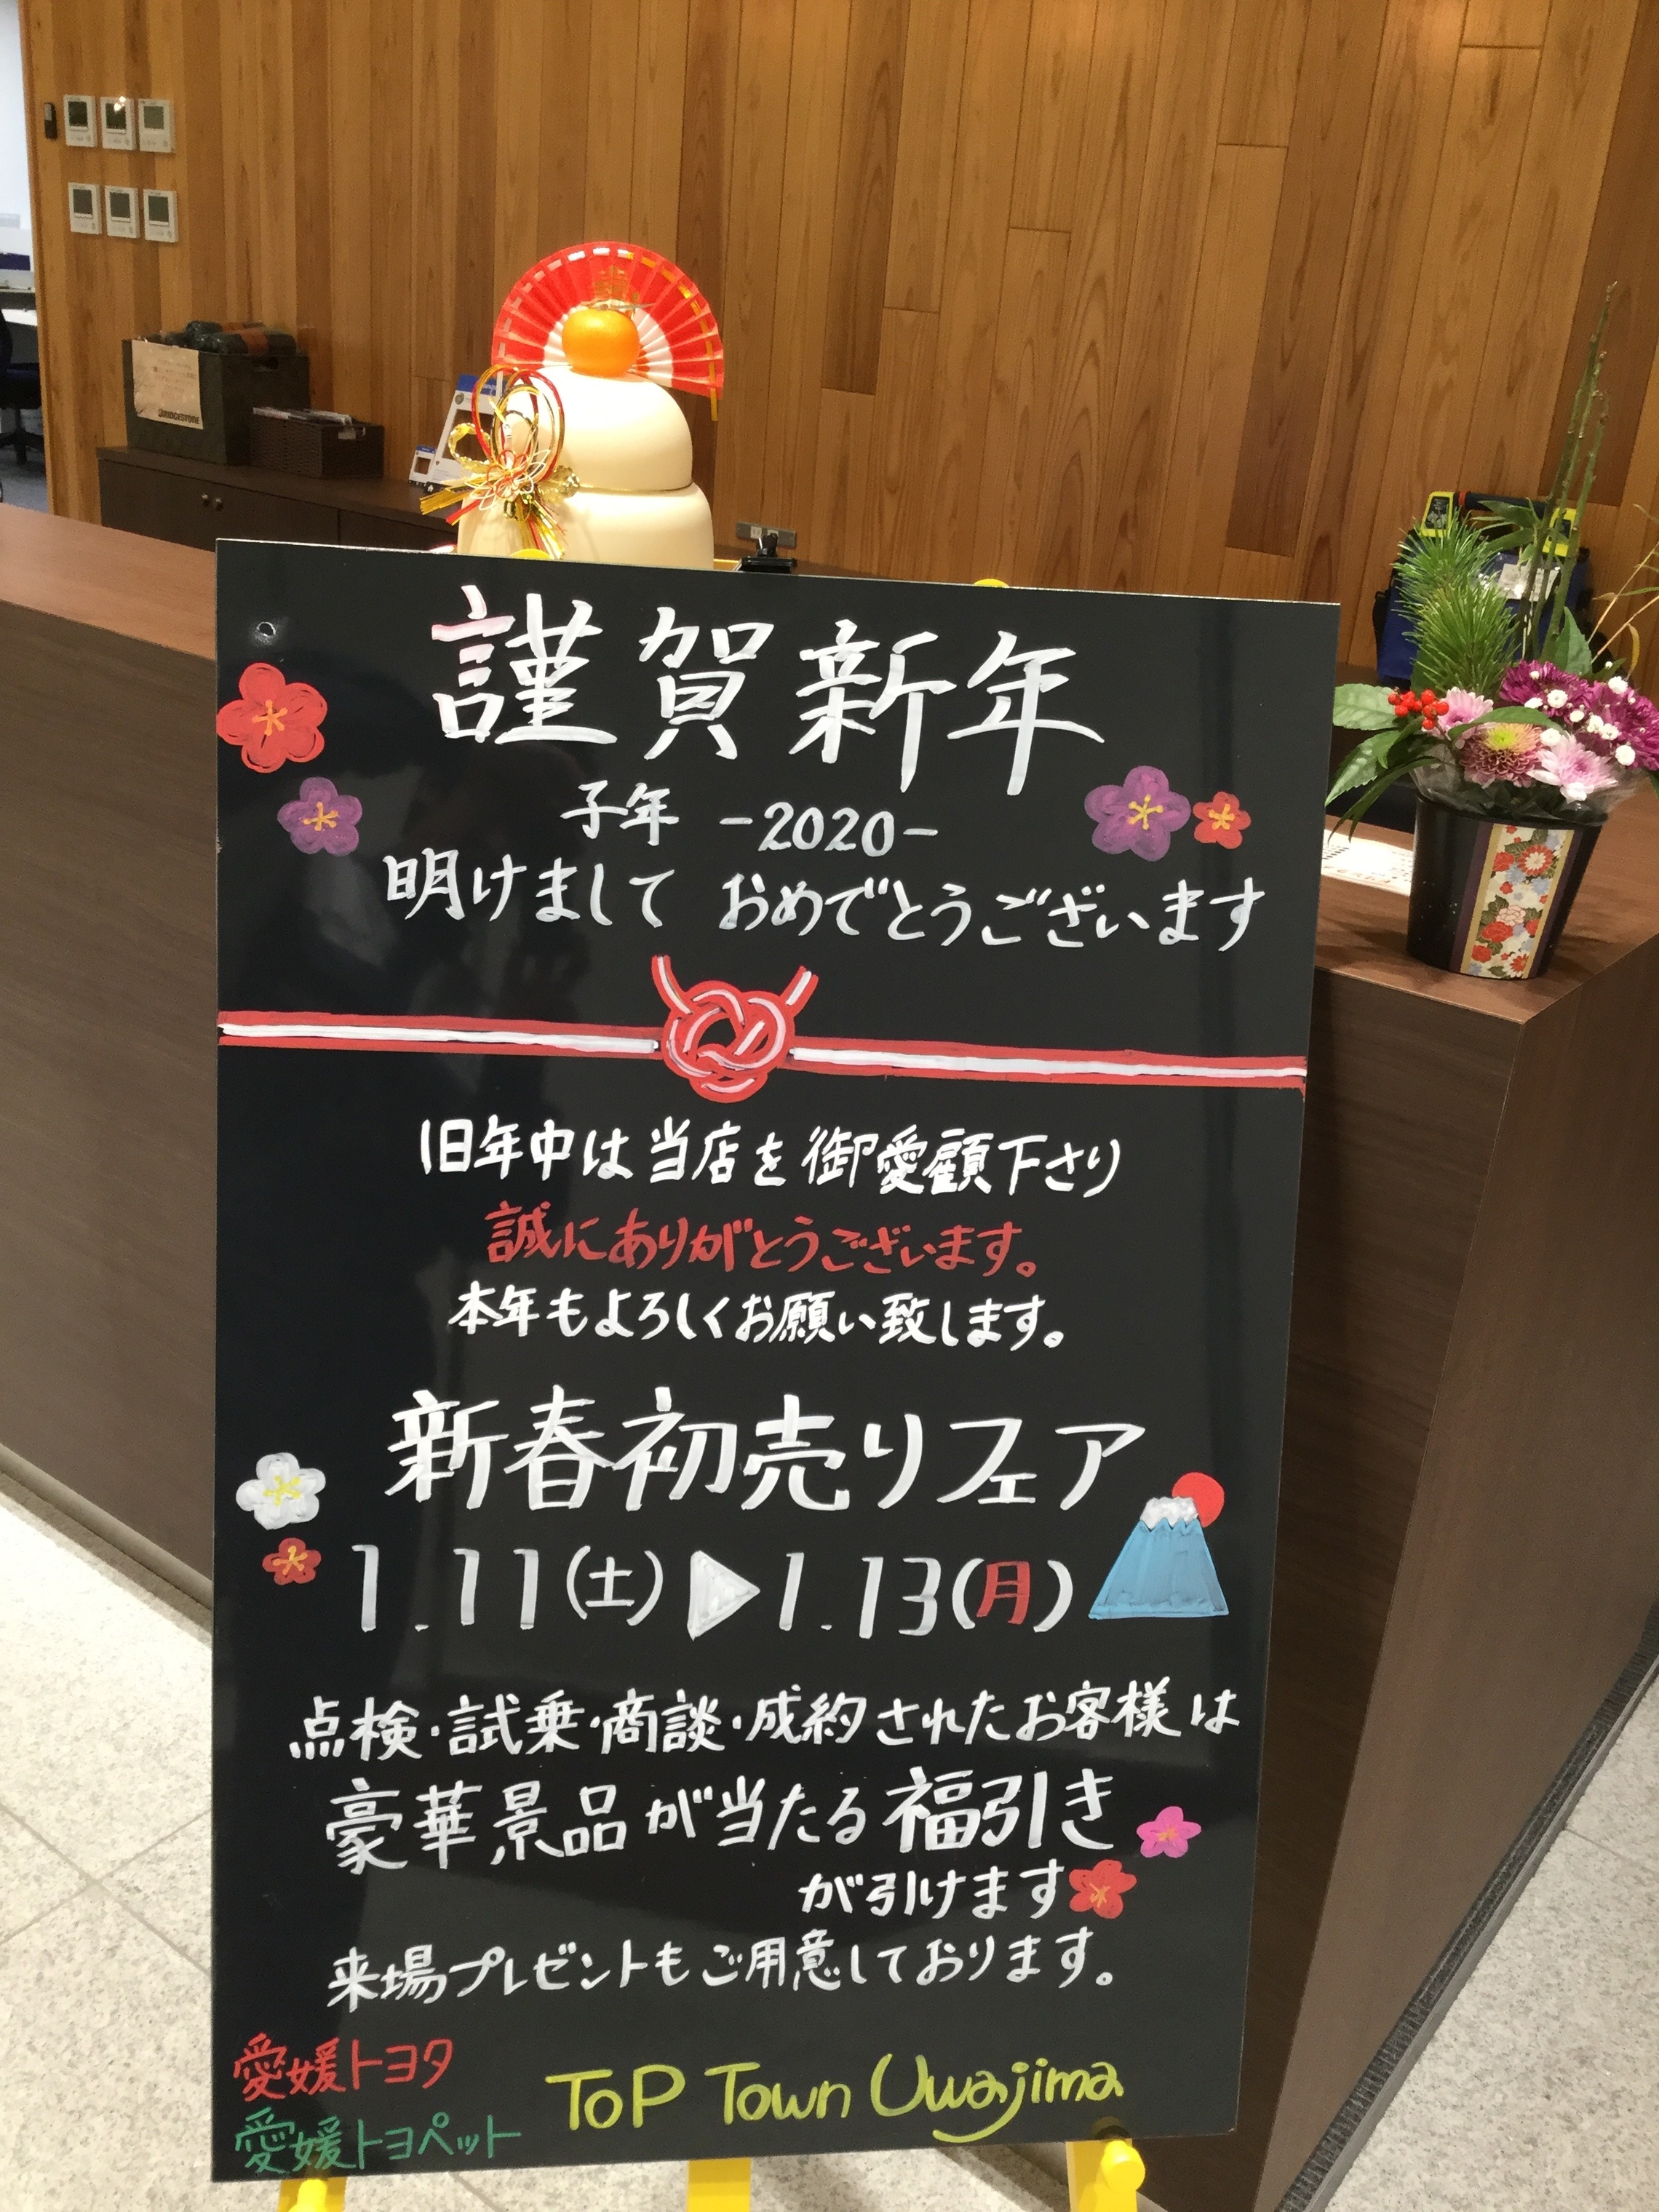 BRIDGESTONE
謹賀新年
子年 -2020-
明けまして おめでとうございます
旧年中は当店を御愛顧下さり
誠にありがとうございます。
本年もよろしくお願い致します。
新春初売りフェア
1.11(土)▶1.13(月)
点検・試乗・商談・成約されたお客様は
豪華景品が当たる福引き
が引けます
来場プレゼントもご用意しております。
愛媛トヨタ
愛媛トヨペット
ToP Town Uwajima